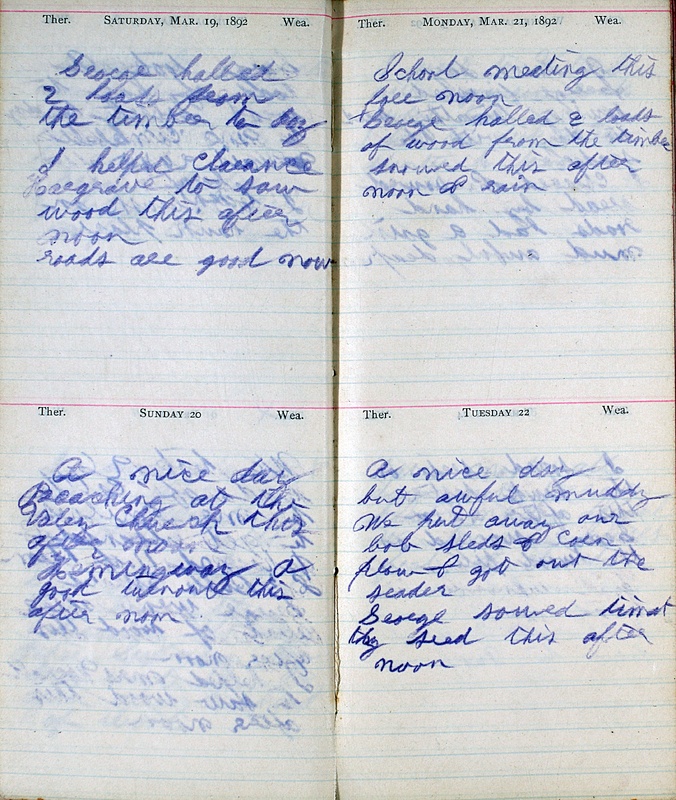 Ther. SATURDAY, MAR. 19, 1892 Wea.
George halled
2 loads from
the timber to day
I helped Clarence
Hargrave to saw
wood this after
noon
roads are good now
Ther. SUNDAY 20 Wea.
A nice day
Preaching at the
Church this
after noon
Hemingway a
good turnout this
after noon
Ther. MONDAY, MAR. 21, 1892 Wea.
School meeting this
fore noon
George halled 2 loads
of wood from the timber
snowed this after
noon & rain
Ther. TUESDAY 22 Wea.
A nice day
but awful muddy
We put away our
bob sleds & corn
plow & got out the
seader
George sowed timot
thy seed this after
noon